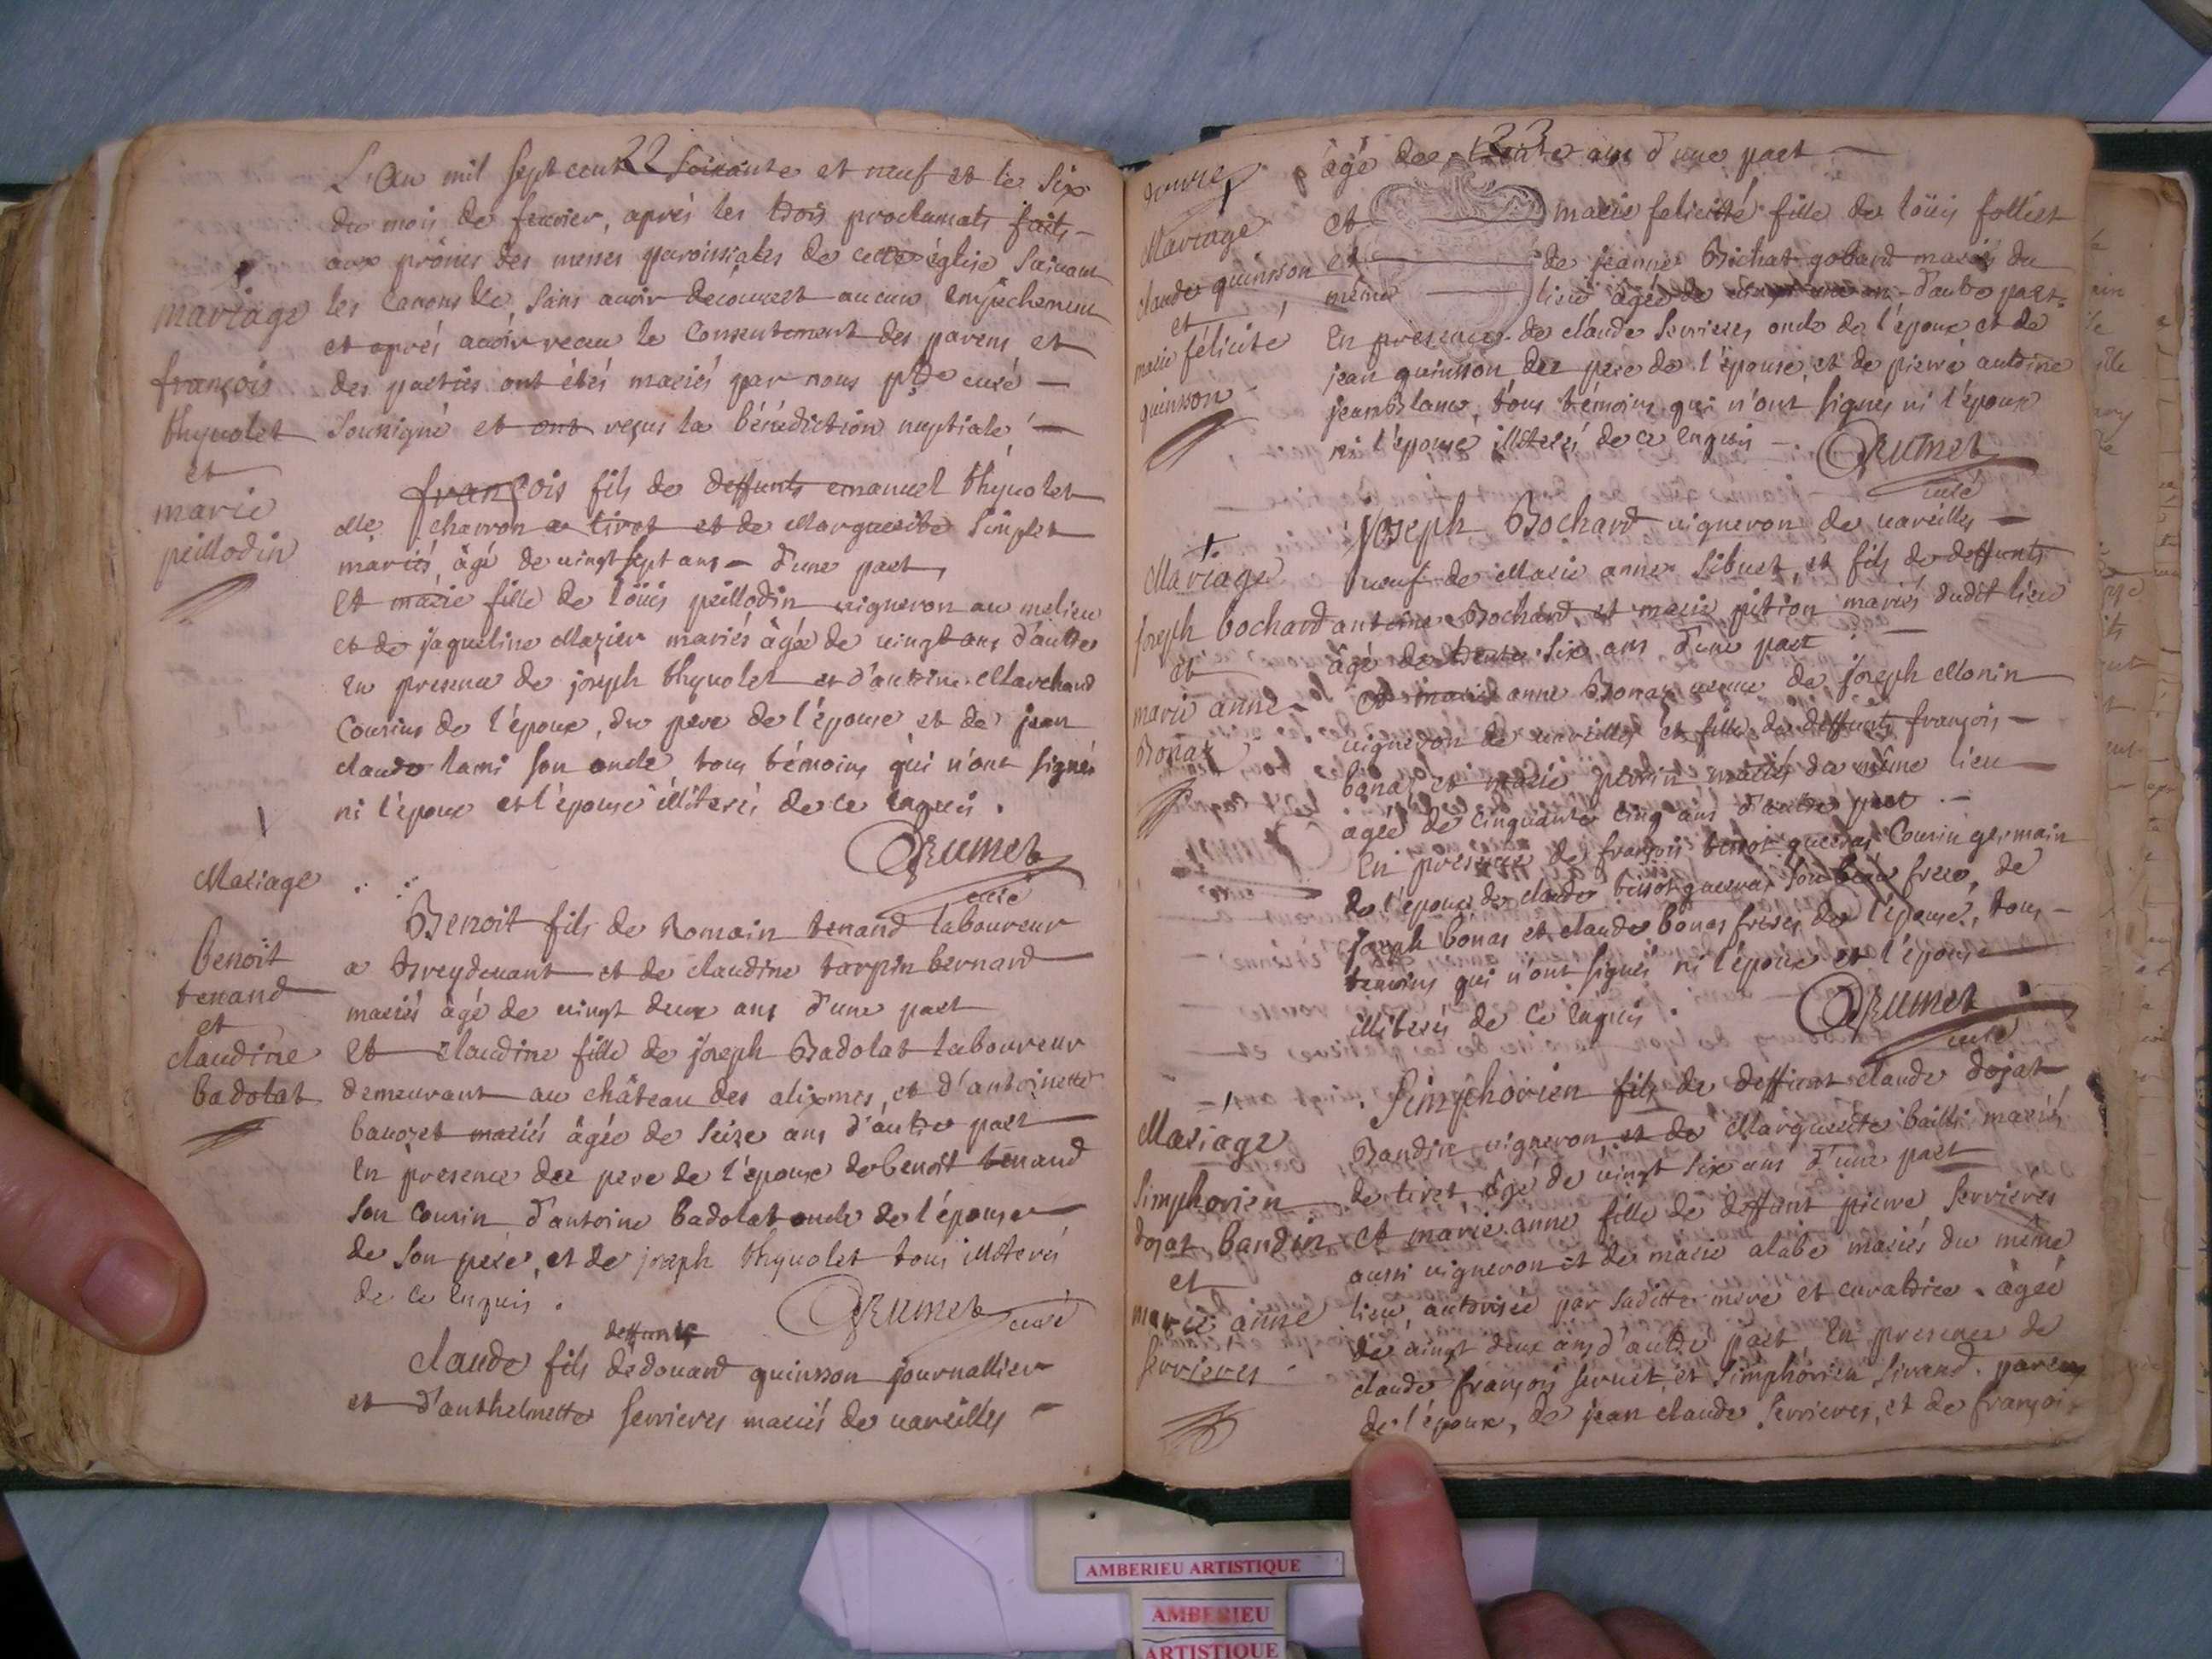 22
L'an mil sept cent soixante et neuf et le six
du mois de fevrier, aprés les trois proclamats faits
aux prônes des messes paroissiales de cette église suivant
les canons &c, sans avoir decouvert aucun empêchement
et aprés avoir receu le consentement des parens et
des parties ont étés mariés par nous ptre curé
soussigné et ont reçus la bénédiction nuptiale
mariage
françois
thynolet
et
marie
peillodin
françois fils de deffunts emanuel thynolet
charron a tiret et de Marguerite Simplet
mariés, âgé de vingt sept ans d'une part,
et marie fille de loüis peillodin vigneron au
et de jaqueline Mazier mariés âgée de vingt ans d'autre
en presence de joseph thynolet et d'antoine Marchand
cousins de l'époux, du pere de l'épouse et de jean
claude lami son oncle tous témoins qui n'ont signés
ni l'époux et l'épouse illiterés de ce enquis.
Grumet
curé
Mariage
benoit
tenand
et
claudine
badolat
Benoit fils de Romain tenand laboureur
a breydevant et de claudine tarpin bernard
mariés âgé de vingt deux ans d'une part
et claudine fille de joseph Badolat laboureur
demeurant au château des alixmes, et d'antoinette
mariés âgée de seize ans d'autre part
en presence du pere de l'époux de benoit tenand
son cousin d'antoine badolat oncle de l'épouse
de son pere, et de joseph thynolet tous illiterés
de ce enquis.
Grumet curé
deffunts
claude fils dédouard quinson journallier
et d'anthelmette serrieres mariés de vareilles
23
âgé de trente ans d'une part
Mariage
claude quinson
et
marie félicité
quinson
et marie felicité fille de loüis folliet
et de jeanne Bichat gobard mariés du
même lieu âgée de d'autre part.
En presence de claude serrieres oncle de l'époux et de
jean quinson du pere de l'épouse, et de pierre antoine
jeamblanc, tous témoins qui n'ont signés ni l'époux
ni l'épouse illiterés de ce enquis
Grumet
curé
Mariage
joseph bochard
et
marie anne
Bonaz
joseph Bochard vigneron de vareilles
veuf de Marie anne Sibuet, et fils de deffunts
antoine Bochard, et marie pition mariés dudit lieu
âgé de trente six ans d'une part
et marie anne Bonaz veuve de joseph Monin
vigneron de vareilles et fille de deffunts françois
bonaz et marie perrin mariés du même lieu
agée de cinquante cinq ans d'autre part.
En presence de françois cousin germain
de l'époux de claude son beau frere, de
joseph bonas et claude bonas freres de l'épouse, tous
temoins qui n'ont signés ni l'époux et l'épouse
illiterés de ce enquis.
Grumet
curé
Mariage
simphorien
dojat bandin
et
marie anne
serrieres
Simphorien fils de deffunt claude dojat
Bandin vigneron et de Marguerite bailli mariés
de tiret, âgé de vingt six ans d'une part
et marie anne fille de deffunt pierre serrieres
aussi vigneron et de marie alabe mariés du même
lieu, autorisée par saditte mere et curatrice. âgée
de vingt deux ans d'autre part, En presence de
claude françois seruet, et simphorien sirand. parens
de l'époux, de jean claude serrieres, et de françois
AMBERIEU ARTISTIQUE
AMBERIEU
ARTISTIQUE